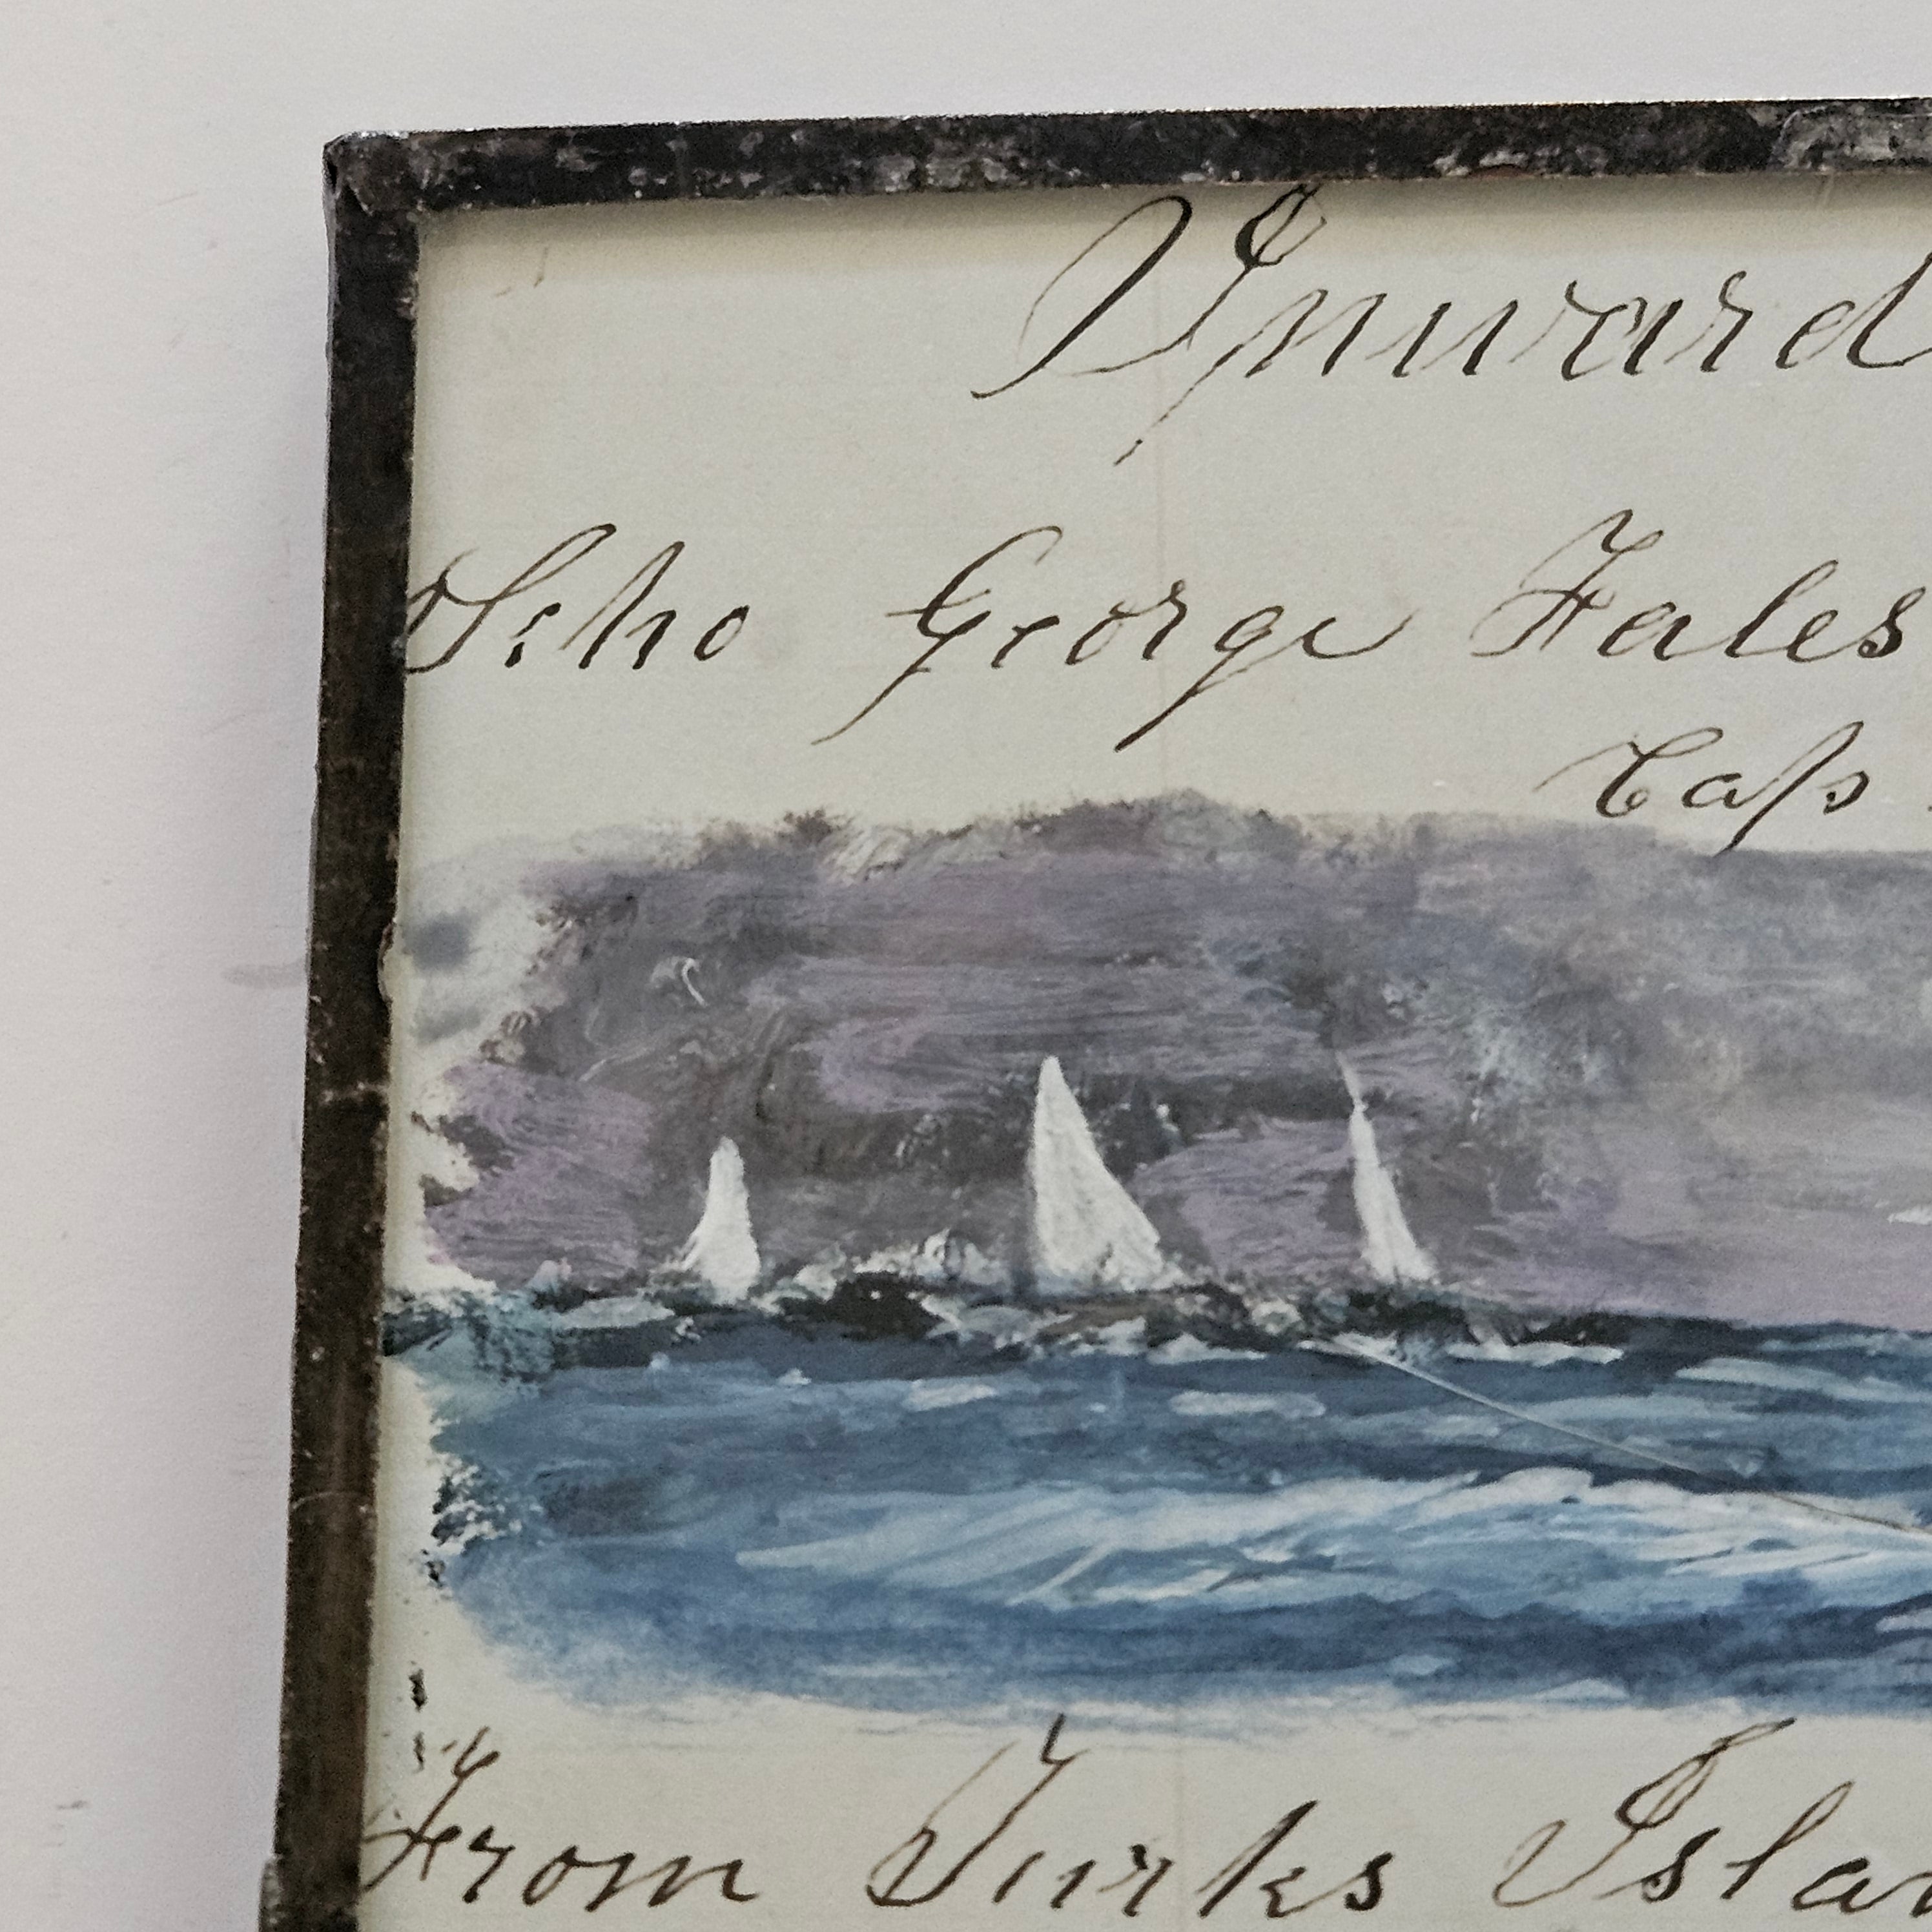 Inward
Scho George Fales
Cap
From Turks Islan